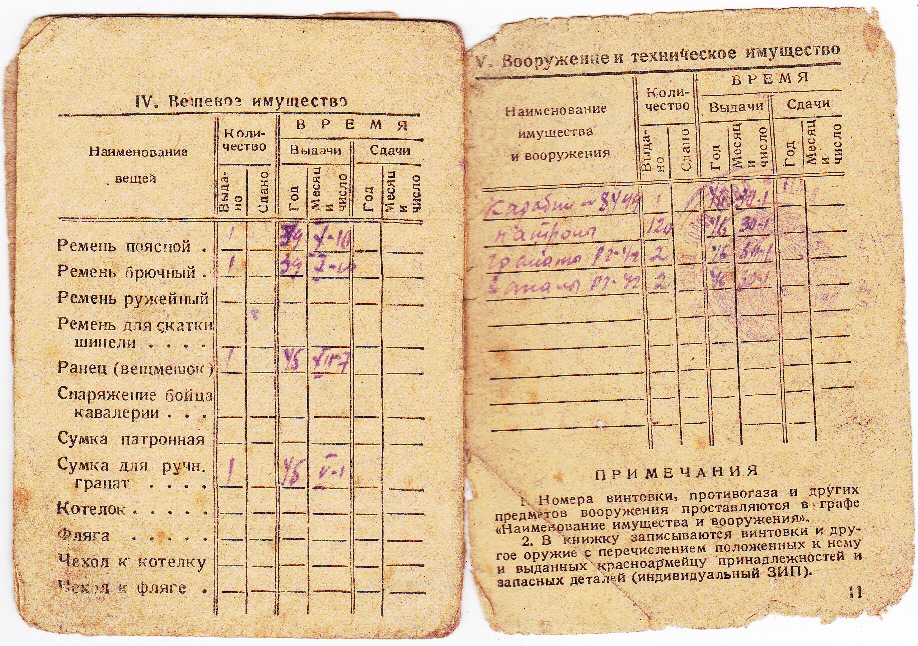 IV. Вещевое имущество
Наименование вещей
Коли-
чество
ВРЕМЯ
Выдачи
Сдачи
Выда-
но
Сдано
Год
Месяц
и
число
Год
Месяц
и
число
Ремень поясной . 1
Ремень брючный . 1
Ремень ружейный
Ремень для скатки
шинели . . . .
Ранец (вещмешок) 1 45
Снаряжение бойца
кавалерии . . .
Сумка патронная
Сумка для ручн.
гранат . . . . 1 45
Котелок . . . . .
Фляга . . . . .
Чехол к котелку
Чехол к фляге .
V. Вооружение и техническое имущество
Наименование
имущества
и вооружения
Коли-
чество
ВРЕМЯ
Выдачи
Сдачи
Выда-
но
Сдано
Год
Месяц
и
число
Год
Месяц
и
число
Карабин 1
патроны 120 46
гранаты РГ-42 2 46
запалы РГ-42 2 46
ПРИМЕЧАНИЯ
1. Номера винтовки, противогаза и других
предметов вооружения проставляются в графе
«Наименование имущества и вооружения».
2. В книжку записываются винтовки и дру-
гое оружие с перечислением положенных к нему
и выданных красноармейцу принадлежностей и
запасных деталей (индивидуальный ЗИП).
11